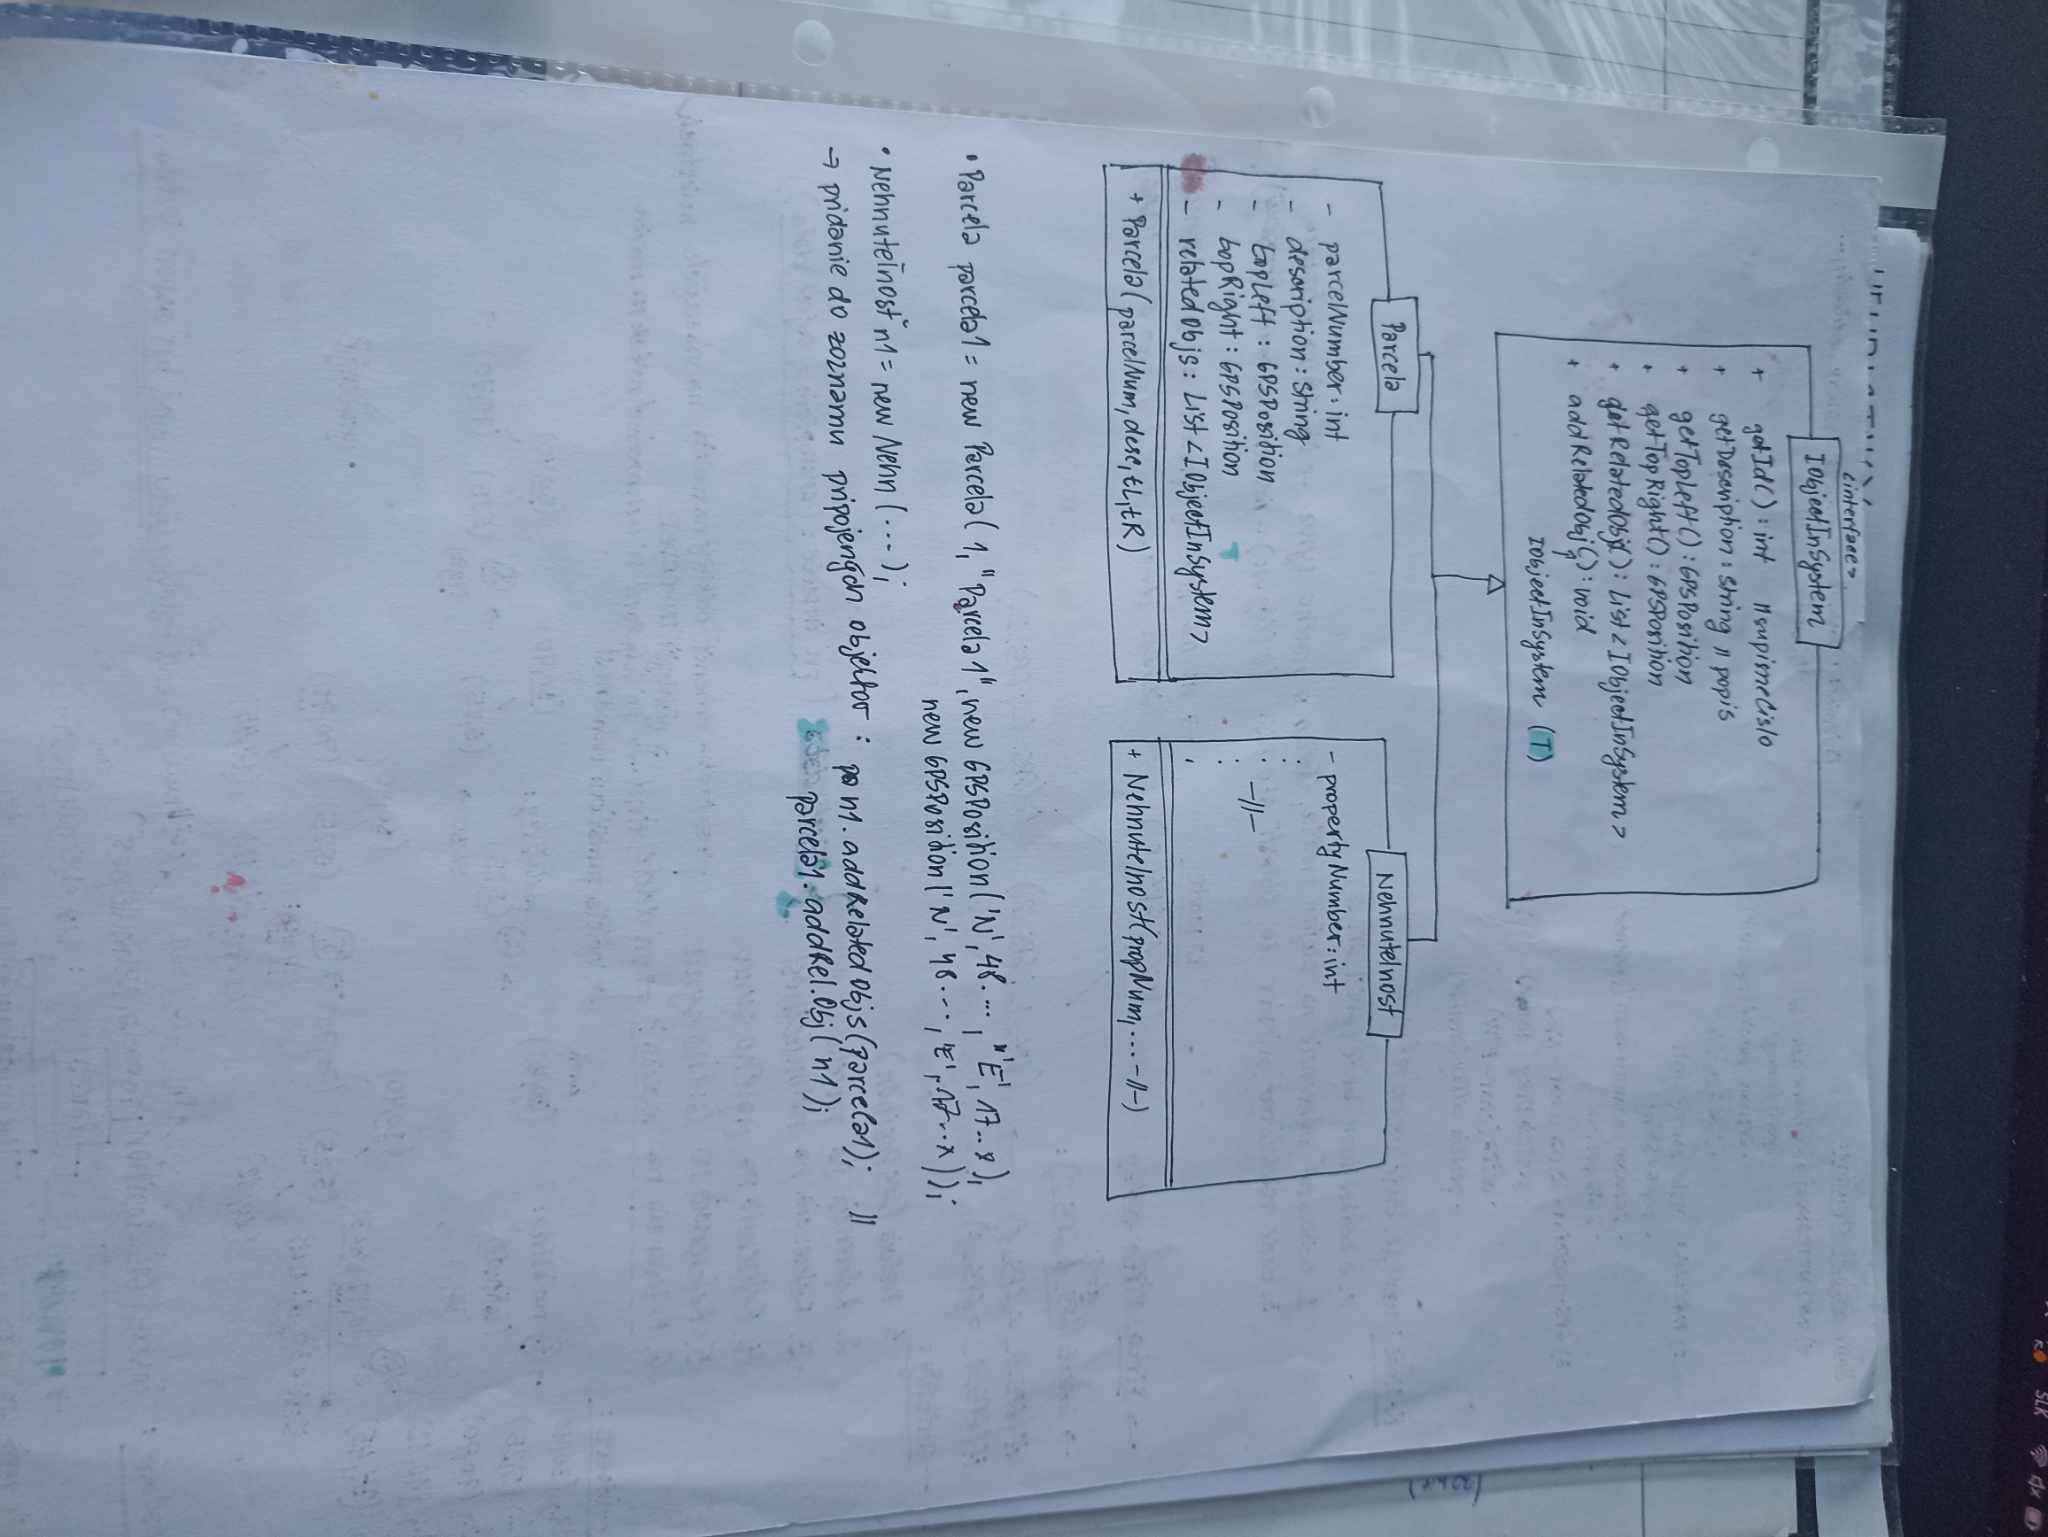 <interface>
IObjectInSystem
+ getId() : int // supisnecislo
+ getDescription : string // popis
+ getTopLeft() : GPSPosition
+ getTopRight() : GPSPosition
+ getRelatedObj() : List<IObjectInSystem>
+ addRelatedObj() : void
IObjectInSystem (T)
Parcela
- parcelNumber : int
- description : string
- topLeft : GPSPosition
- topRight : GPSPosition
T
- relatedObjs : List<IObjectInSystem>
+ Parcela(parcelNum, desc, tL, tR)
Nehnutelnost
- propertyNumber : int
-//-
+ Nehnutelnost(propNum, ... -//-)
• Parcela parcela1 = new Parcela(1, "Parcela1", new GPSPosition('N', 48. ..., 'E', 17...x),
new GPSPosition('N', 48. ..., 'E', 17...x));
• Nehnuteľnosť n1 = new Nehn(...);
→ pridanie do zoznamu pripojených objektov : n1.addRelatedObjs(parcela1); //
parcela1.addRel.Obj(n1);